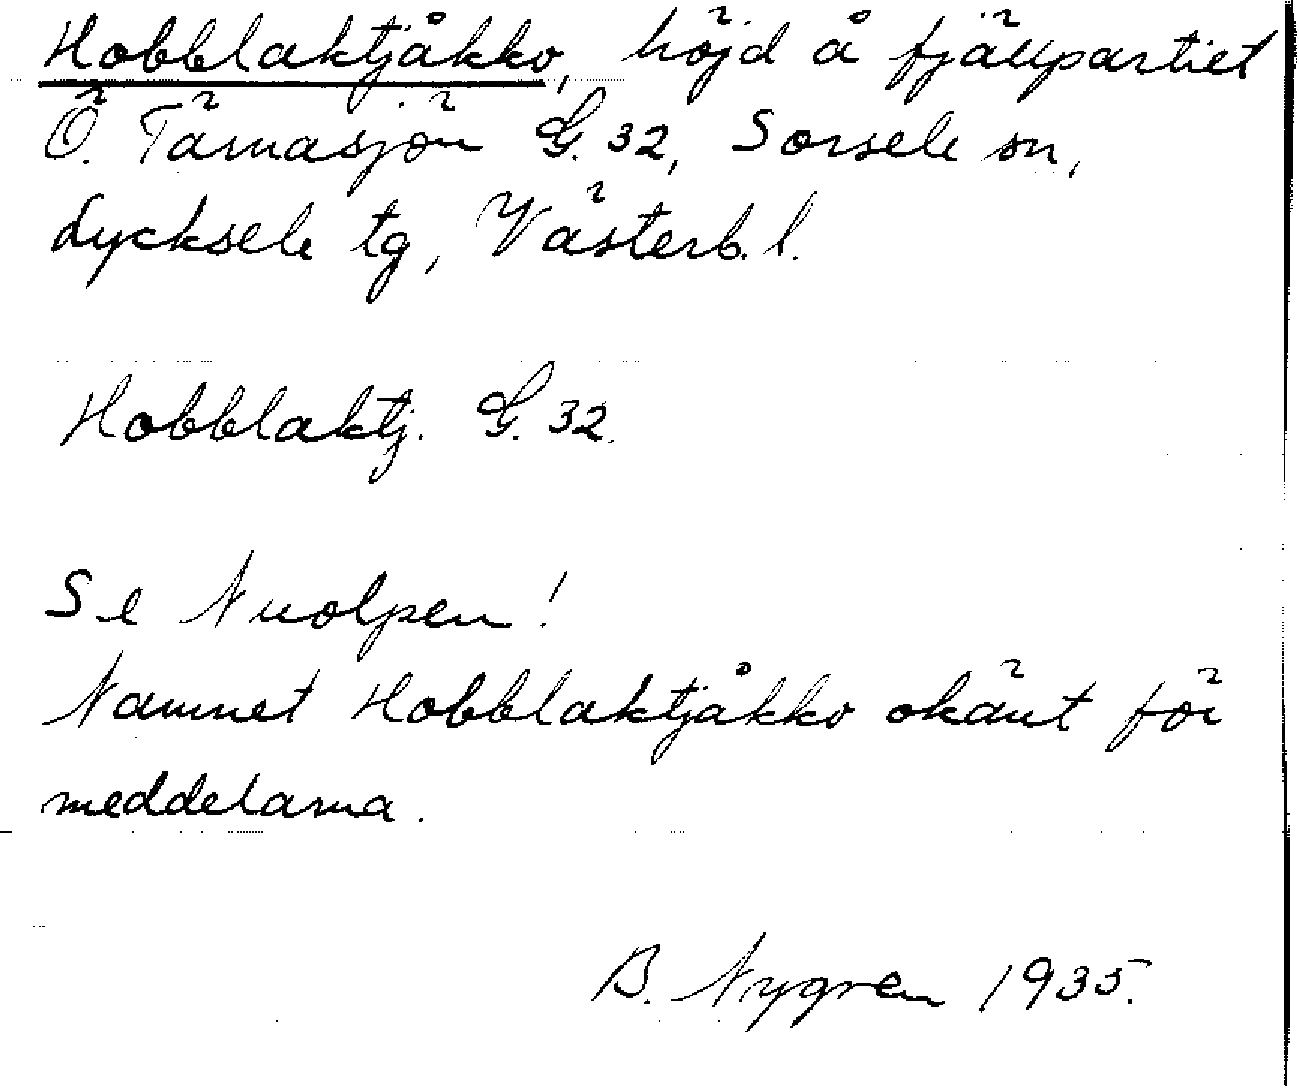 Hobblaktjåkko, höjd å fjällpartiet
Ö. Tärnasjön G. 32, Sorsele sn,
Lycksele tg, Västerb. l.
Hobblaktj. G. 32.
Se Nuolpen!
Namnet Hobblaktjåkko okänt för
meddelarna.
B. Nygren 1935.